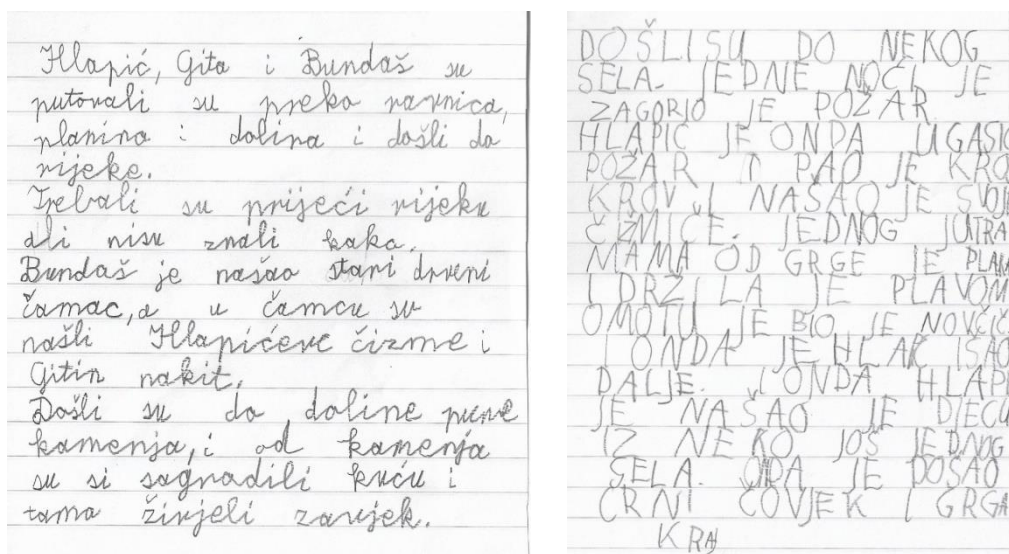 Hlapić, Gita i Bundaš su
putovali su preko ravnica,
planina i dolina i došli do
rijeke.
Trebali su prijeći rijeku
ali nisu znali kako.
Bundaš je našao stari drveni
čamac, a u čamcu su
našli Hlapićeve čizme i
Gitin nakit.
Došli su do doline pune
kamenja, i od kamenja
su si sagradili kuću i
tamo živjeli zauvjek.
DOŠLISU DO NEKOG
SELA. JEDNE NOĆI JE
ZAGORIO JE POŽAR.
HLAPIĆ JE ONDA UGASIO
POŽAR I PAO JE KRO
KROV I NAŠAO JE SVOJE
ČIŽMIČE. JEDNOG JUTRA
MAMA OD GRGE JE PLAK
I DRŽILA JE PLAVOM
OMOTU JE BIO JE NOVČIĆ
I ONDA JE HLAP IŠAO
DALJE. I ONDA HLAPI
JE NAŠAO JE DJECU
IZ NEKO JOŠ JEDNOG
SELA. JE DOŠAO
CRNI ČOVJEK I GRGA
KRAJ